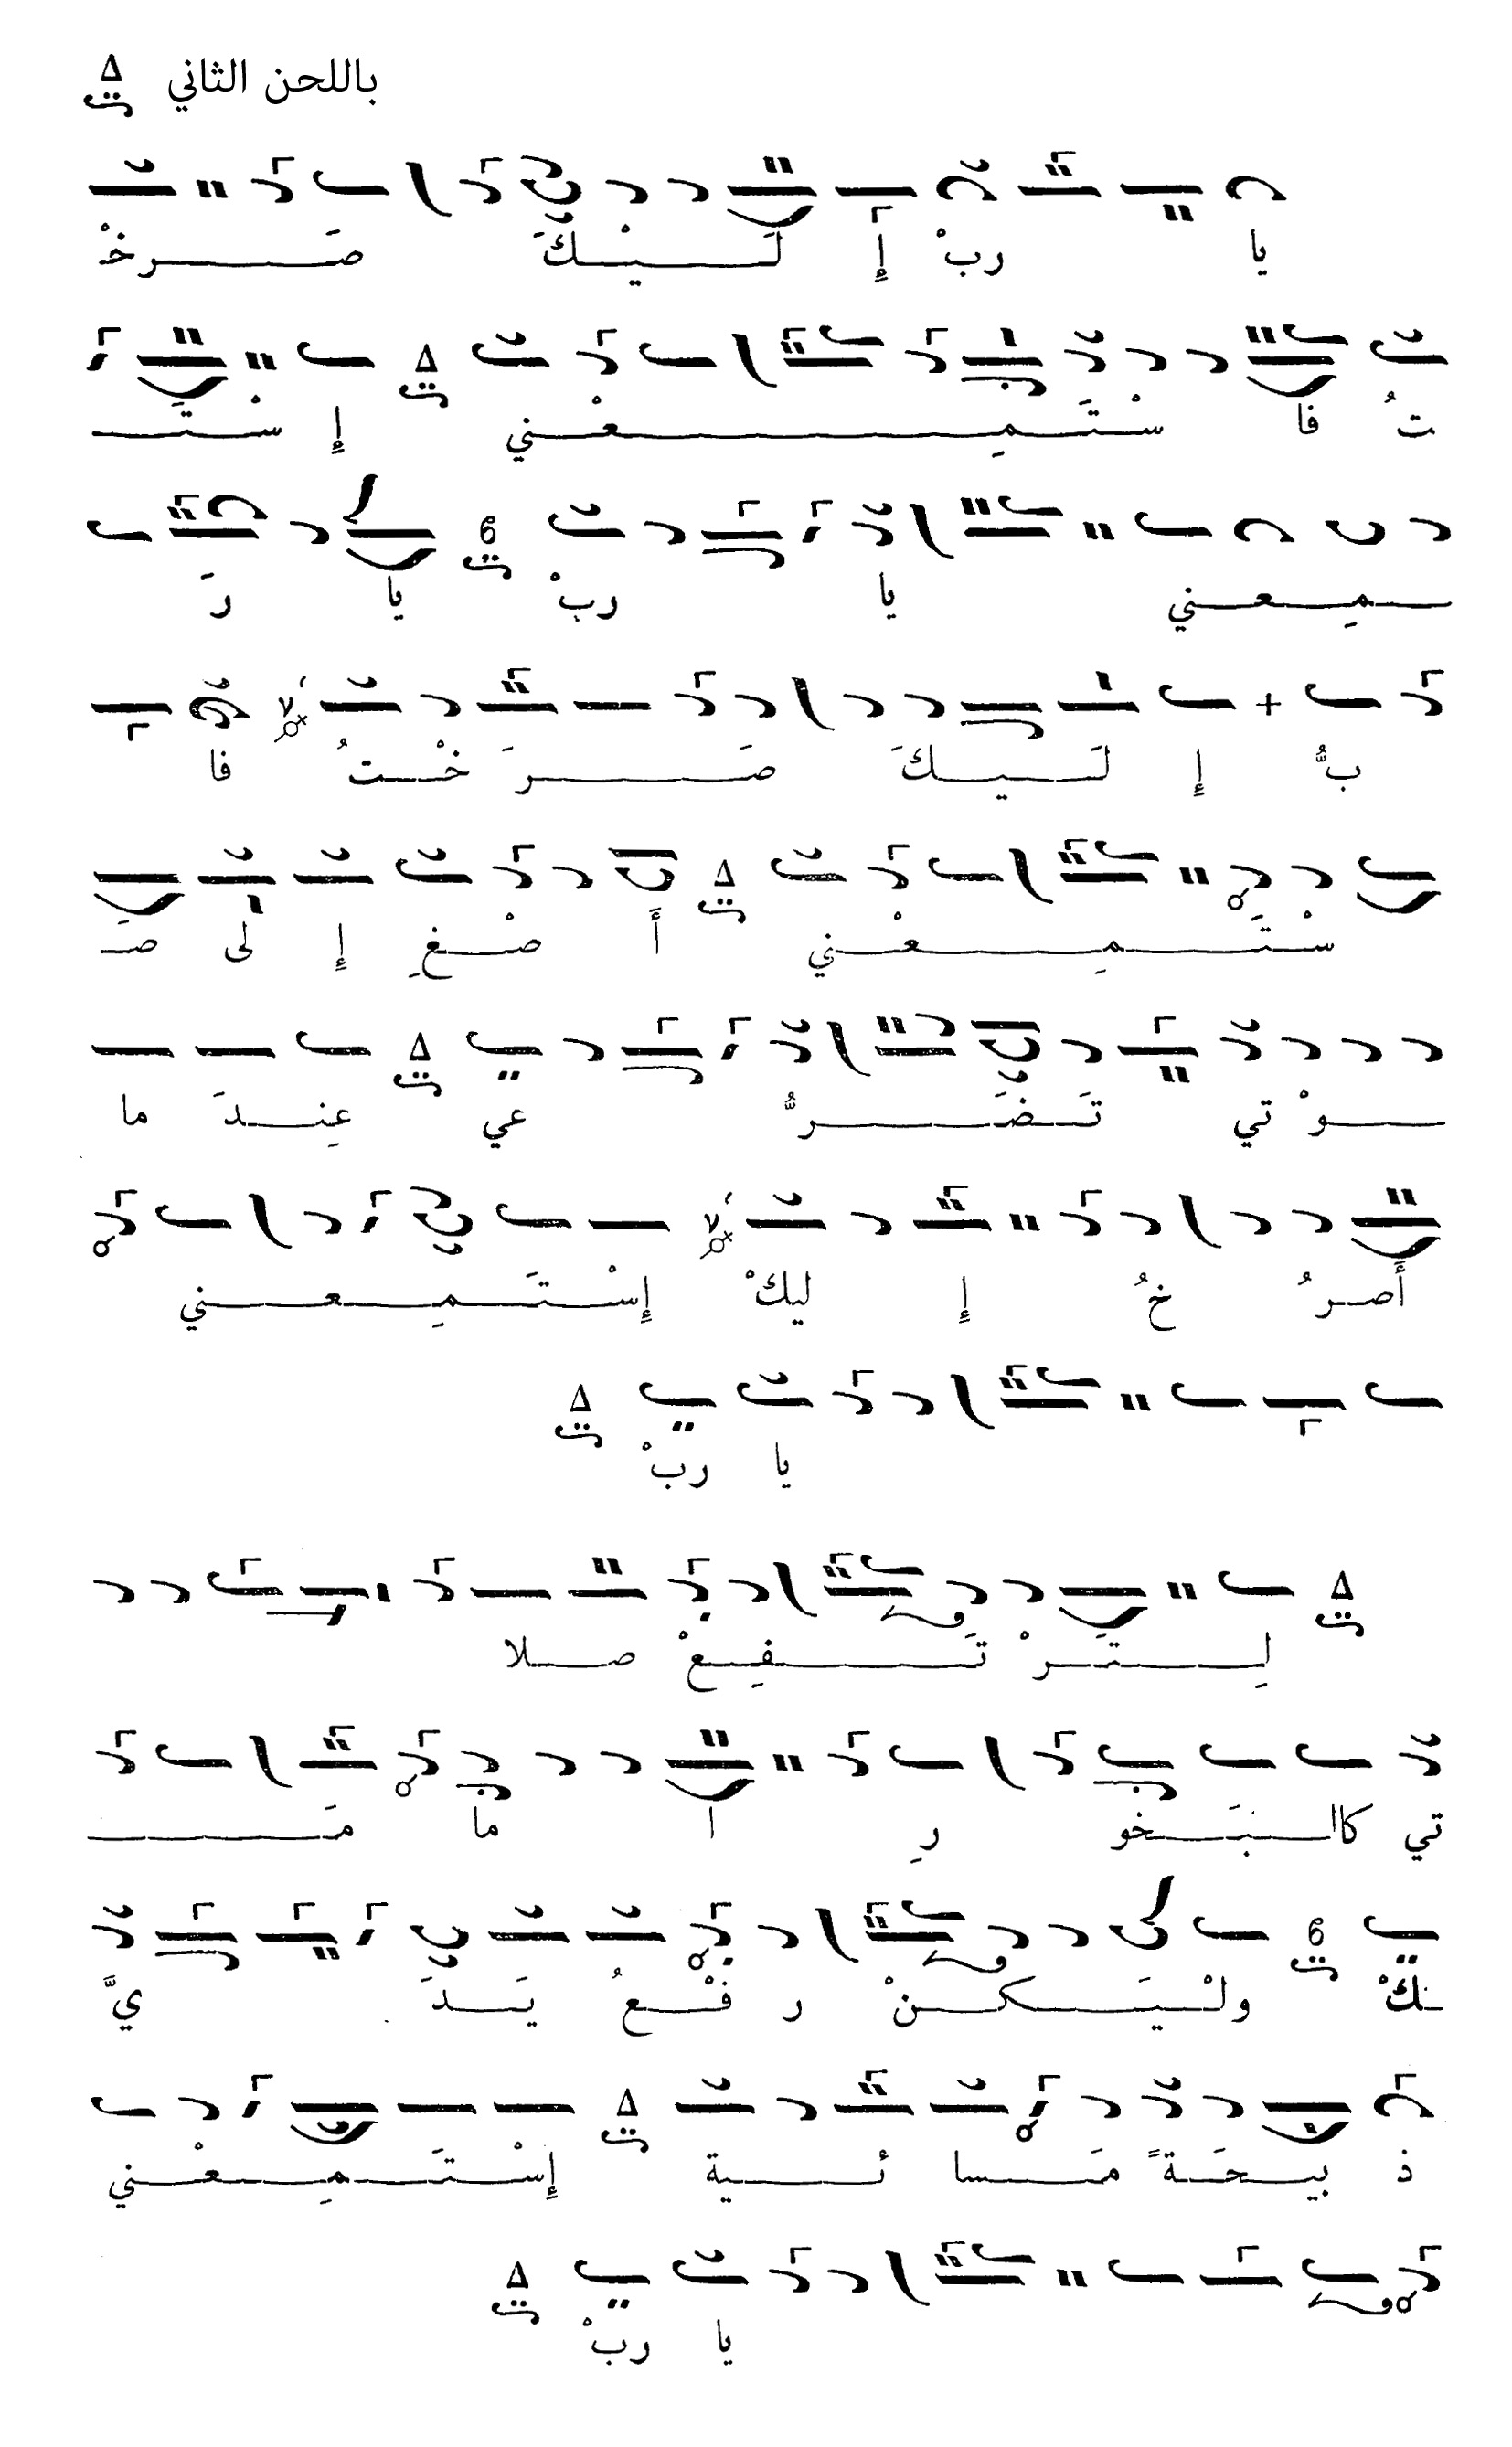 باللحن الثاني
يا ربْ إِلَيْكَ صَرخْ
تُ فا سْتَمِعْني إِسْتَ
مِعني يا ربْ يا رَ
بُّ إِلَيكَ صَرَخْتُ فا
سْتَمِعْني أَصْغِ إِلى صَ
وْتي تَضَرُّعي عِندَما
أَصرُخُ إِليكْ إِسْتَمِعني
يا ربْ
لِتَرْتَفِعْ صلا
تي كالبَخورِ اما مَ
نكْ ولْيَكنْ رفْعُ يَدَيَّ
ذبيحَةً مَسائية إِسْتَمِعْني
يا ربْ